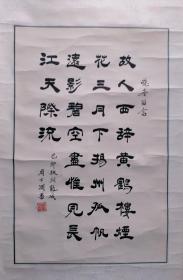 故人西辭黃鶴樓煙
花三月下揚州孤帆
遠影碧空盡惟見長
江天際流
己卯秋於龍城